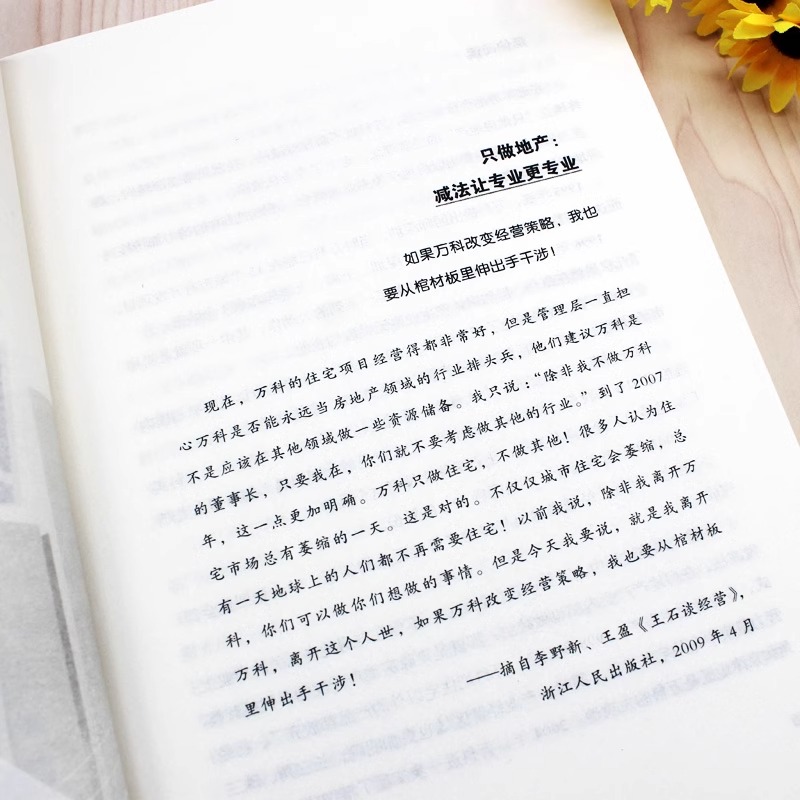 只做地产：
减法让专业更专业
如果万科改变经营策略，我也
要从棺材板里伸出手干涉！
现在，万科的住宅项目经营得都非常好，但是管理层一直担
心万科是否能永远当房地产领域的行业排头兵，他们建议万科是
不是应该在其他领域做一些资源储备。我只说：“除非我不做万科
的董事长，只要我在，你们就不要考虑做其他的行业。”到了2007
年，这一点更加明确。万科只做住宅，不做其他！很多人认为住
宅市场总有萎缩的一天。这是对的。不仅仅城市住宅会萎缩，总
有一天地球上的人们都不再需要住宅！以前我说，除非我离开万
科，你们可以做你们想做的事情。但是今天我要说，就是我离开
万科，离开这个人世，如果万科改变经营策略，我也要从棺材板
里伸出手干涉！
——摘自李野新、王盈《王石谈经营》，
浙江人民出版社，2009年4月